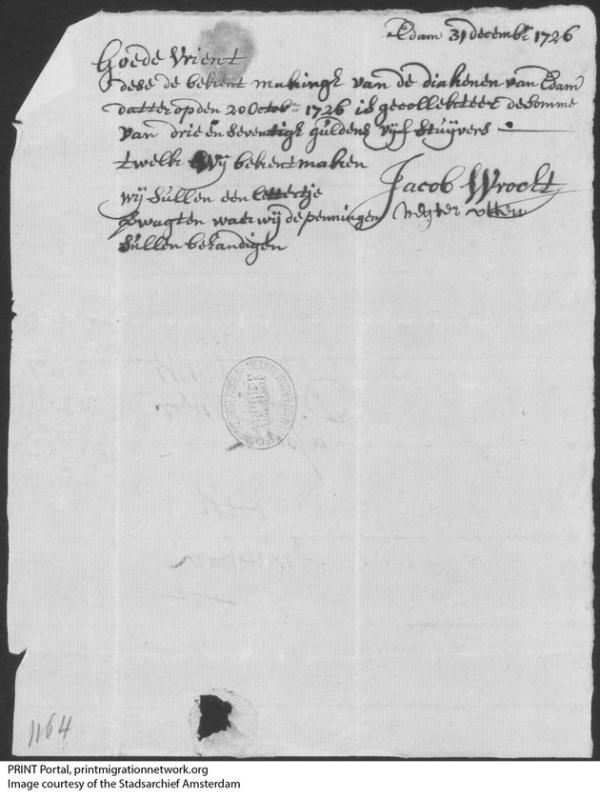 Edam 31 decembr 1726
Goede Vrient
dese de bekent makingk van de diakenen van Edam
datter op den 20 Octob 1726 is gecollekteert de somme
van drie en seventigk guldens vijf stuijvers
twelk wij bekent maken
wij sullen een lettertje
Jacob Wroelt
wagten waer wij de penningen
sullen behandigen
1164
PRINT Portal, printmigrationnetwork.org
Image courtesy of the Stadsarchief Amsterdam